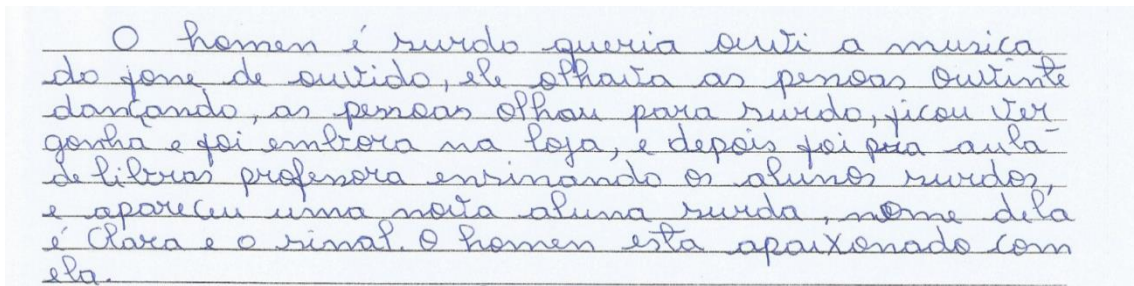 O homen é surdo queria ouvi a musica
do fone de ouvido, ele olhava as pessoas ouvinte
dançando, as pessoas olhou para surdo, ficou ver
gonha e foi embora na loja, e depois foi pra aula
de libras professora ensinando os alunos surdos,
e apareceu uma nova aluna surda, nome dela
é Clara e o sinal. O homen esta apaixonado com
ela.